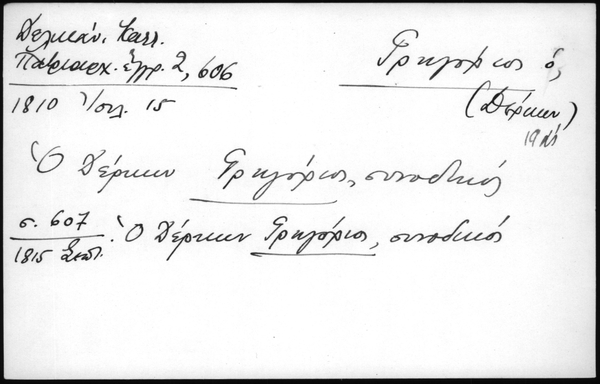 Δελικάν. Καλλ.
Πατριαρχ. Ἔγγρ. 2, 606
1810 Ἰουλ. 15
Γρηγόριος ὁ,
(Δέρκων)
19
Ὁ Δέρκων Γρηγόριος, συνοδικός
σ. 607
1815 Σεπτ.
: Ὁ Δέρκων Γρηγόριος, συνοδικός